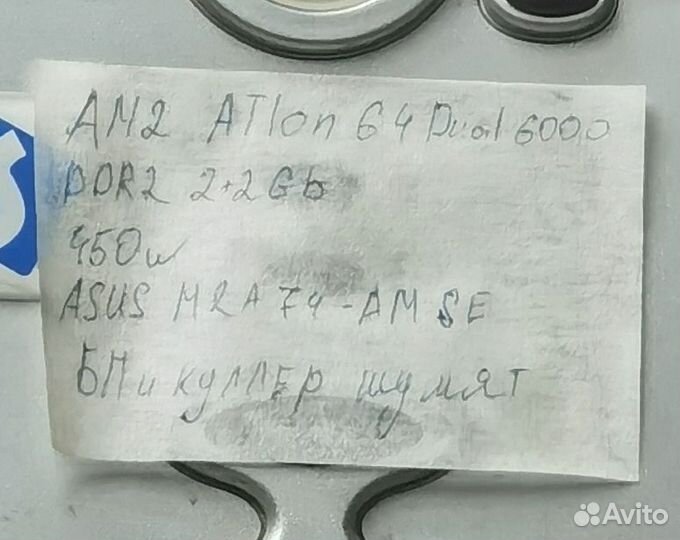 AM2 ATlon 64 Dual 6000
DDR2 2+2Gb
450w
ASUS M2A74-AM SE
БП и куллер шумят
Avito